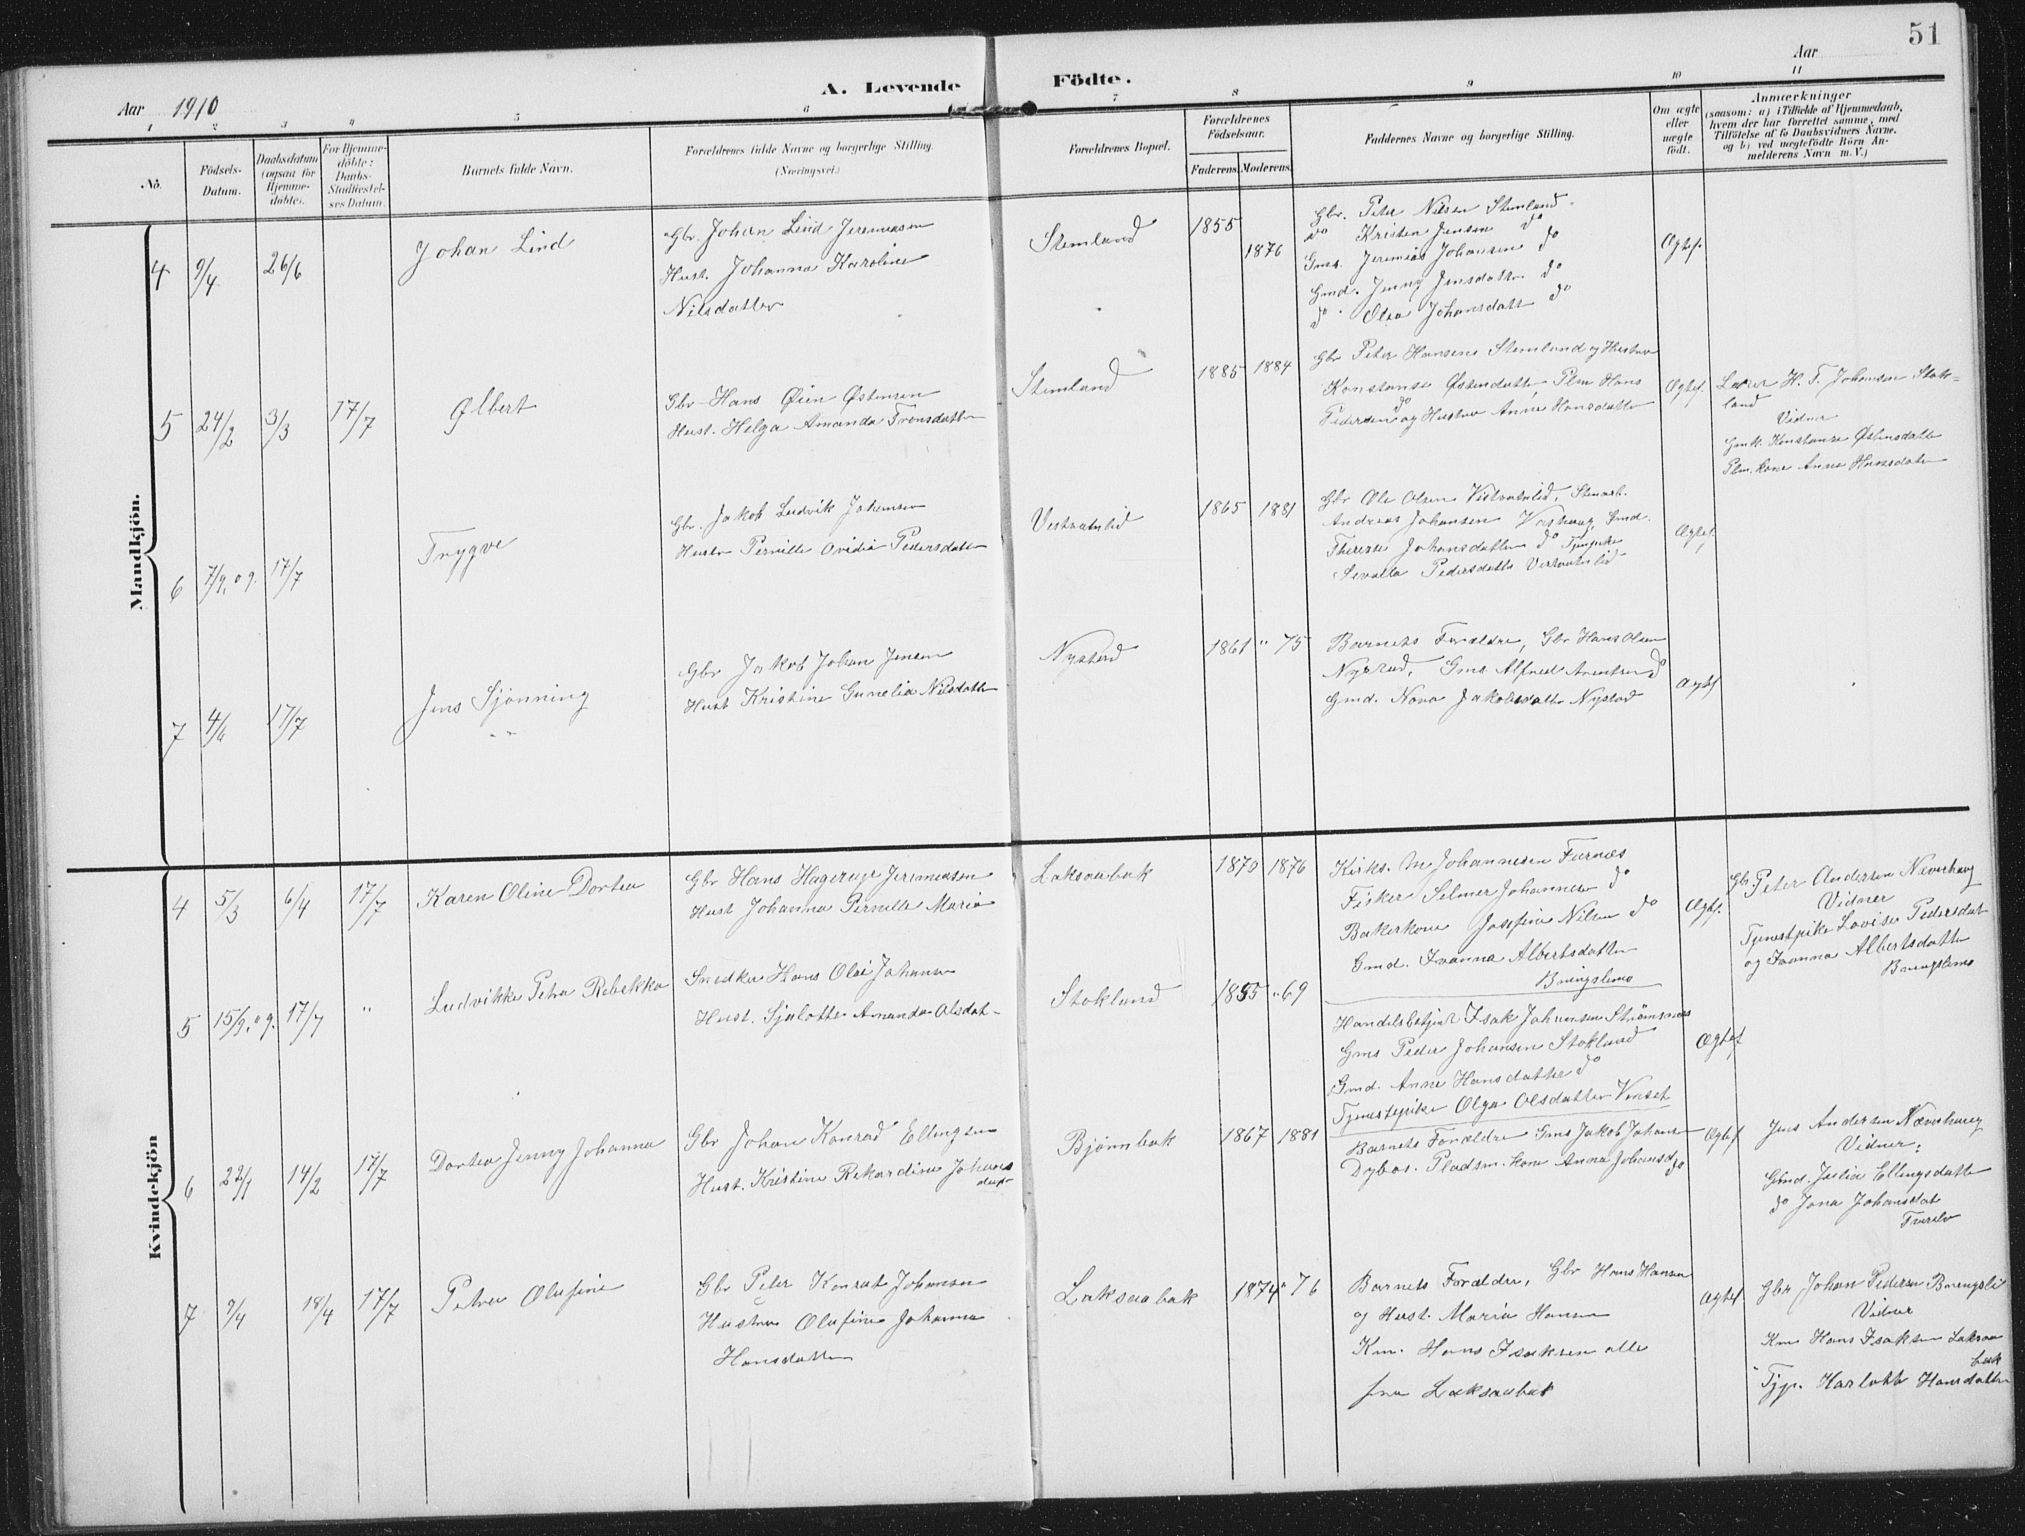 51
Aar 1910
A. Levende Födte.
Aar
1 2 3 4 5 6 7 8 9 10 11
No.
Födsels-
Datum.
Daabsdatum
(ogsaa for
Hjemme-
döbte).
For Hjemme-
döbte:
Daabs-
Stadfæstel-
ses Datum.
Barnets fulde Navn.
Forældrenes fulde Navne og borgerlige Stilling.
(Næringsvei.)
Forældrenes Bopæl.
Forældrenes
Födselsaar.
Faderens. Moderens.
Faddernes Navne og borgerlige Stilling.
Om ægte
eller
uægte
födt.
Anmærkninger
(saasom: a) i Tilfælde af Hjemmedaab,
hvem der har forrettet samme, med
Tilföielse af to Daabsvidners Navne.
og b) ved uægtefödte Börn An-
melderens Navn m. V.)
Mandkjön.
4 9/4 26/6
Johan Lind
Gbr. Johan Lind Jeremiasen
Hust. Johanna Karoline
Nilsdatter
Stemland
1855
1876
Gbr. Peter Nilsen Stemland
do Kristen Jensen do
Gms. Jeremias Johansen do
Gmd. Jenny Jensdatter do
do Olea Johansdatt do
Ægtef.
5 24/2 3/3 17/7
Albert
Gbr Hans Øien Østensen
Hust. Helga Amanda Tronsdatter
Stemland
1885 1884
Gbr Peter Hansens Stemland og Hustru
Konstanse Østensdatter Plm Hans
Pedersen do og Hustru Anne Hansdatter
Ægtef.
Lærer H. T. Johansen Stok-
land
Vidner
Gmk. Konstanse Østensdatter
Plm. kone Anne Hansdatter
6 7/9. 09. 17/7
Trygve
Gbr. Jakob Ludvik Johansen
Hustr Pernille Ovidia Pedersdatter
Vestvatnlid
1865 1881
Gbr Ole Olsen Vestvatnlid,
Andreas Johansen Gmd.
Therese Johansdatter do Tjenpike
Sevalla Pedersdatter Vestvatnlid
Ægtef.
7 4/6 17/7
Jens Sjønning
Gbr Jakob Johan Jensen
Hust Kristine Gunelia Nilsdatter
Nystad
1861 " 75
Barnets Forældre, Gbr Hans Olsen
Nystad, Gms Alfred Arentsen do
Gmd. Nova Jakobsdatter Nystad
Ægtf
Kvindekjön
4 5/3 6/4 17/7
Karen Oline Dortea
Gbr Hans Hagerup Jeremiasen
Hust Johanna Pernille Maria
Laksaabak
1870 1876
Kirks. M Johannesen Furnæs
Fisker Selmer Johannesen do
Bakerkone Josefine Nilsen do
Gmd. Ivanna Albertsdatter
Breingslemo
Ægtf.
Gb. Peter Andersen Neverhaug
Vidner
Tjenestpike Lovise Pedersdat
og Ivanna Albertsdatter
Breingslemo
5 15/9. 09. 17/7 "
Ludvikke Petra Rebekka
Snedker Hans Olai Johansen
Hust. Sjalotte Amanda Olsdat-
Stokland
1855 " 69
Handelsbetjent Isak Johansen Strømsnes
Gms Peder Johansen Stokland
Gmd. Anne Hansdatter do
Tjenestepike Olga Olsdatter Venset
Ægtef
6 22/1 14/2 17/7
Dortea Jenny Johanna
Gbr Johan Konrad Ellingsen
Hust. Kristine Rikardine Johans
datr
Bjørnbak
1867 1881
Barnets Forældre Gms Jakob Johans
Dybos. Pladsm. kone Anna Johansd do
Ægtef
Jens Andersen Næverhaug
Vidner:
Gmd. Julia Ellingsdatter
do Jona Johansdat
Tverelv
7 9/4 18/4 17/7
Petra Olufine
Gbr Peter Konrat Johansen
Hustru Olufine Johanna
Hansdatter
Laksaabak
1874 " 76
Barnets Forældre, Gbr Hans Hansen
og Hust. Maria Hansen
Km. Hans Isaksen alle
fra Laksaabak
Ægtef.
Gbr Johan Pedersen Breingsli
Vidner
Km Hans Isaksen Laksaa
bak
Tjp. Harlotte Hansdatter